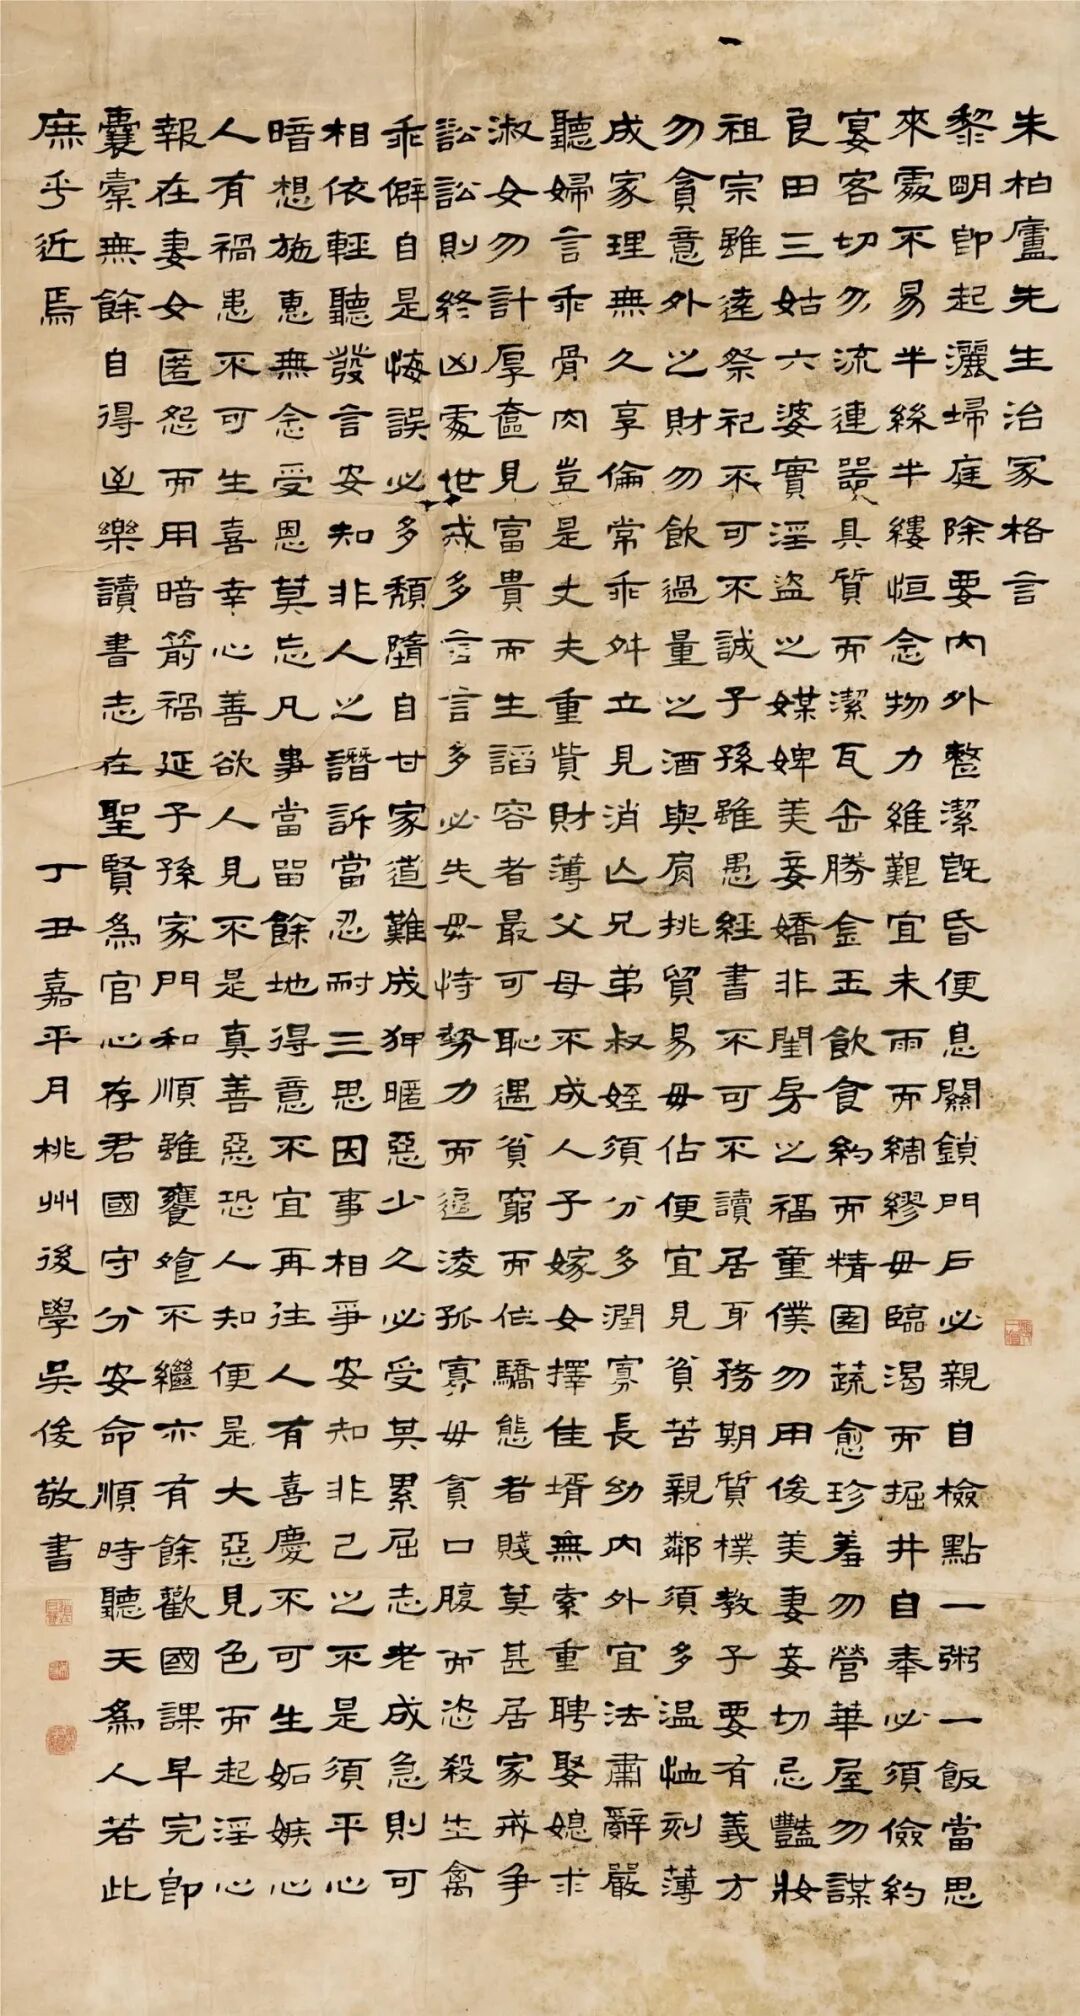 朱柏廬先生治家格言
黎明即起灑埽庭除要内外整潔既昏便息關鎖門戶必親自檢點一粥一飯當思
來處不易半絲半縷恒念物力維艱宜未雨而綢繆毋臨渴而掘井自奉必須儉約
宴客切勿流連器具質而潔瓦缶勝金玉飲食約而精園蔬愈珍羞勿營華屋勿謀
良田三姑六婆實淫盜之媒婢美妾嬌非閨房之福童僕勿用俊美妻妾切忌豔妝
祖宗雖遠祭祀不可不誠子孫雖愚經書不可不讀居身務期質樸教子要有義方
勿貪意外之財勿飲過量之酒與肩挑貿易毋佔便宜見貧苦親鄰須多温恤刻薄
成家理無久享倫常乖舛立見消亡兄弟叔姪須分多潤寡長幼内外宜法肅辭嚴
聽婦言乖骨肉豈是丈夫重貲財薄父母不成人子嫁女擇佳壻無索重聘娶媳求
淑女勿計厚奩見富貴而生諂容者最可恥遇貧窮而作驕態者賤莫甚居家戒爭
訟訟則終凶處世戒多言言多必失毋恃勢力而逼淩孤寡毋貪口腹而恣殺生禽
乖僻自是悔誤必多頽墮自甘家道難成狎暱惡少久必受其累屈志老成急則可
相依輕聽發言安知非人之譖訴當忍耐三思因事相爭安知非己之不是須平心
暗想施惠無念受恩莫忘凡事當留餘地得意不宜再往人有喜慶不可生妬嫉心
人有禍患不可生喜幸心善欲人見不是真善惡恐人知便是大惡見色而起淫心
報在妻女匿怨而用暗箭禍延子孫家門和順雖饔飧不繼亦有餘歡國課早完即
囊橐無餘自得至樂讀書志在聖賢為官心存君國守分安命順時聽天為人若此
庶乎近焉
丁丑嘉平月桃州後學吳俊敬書